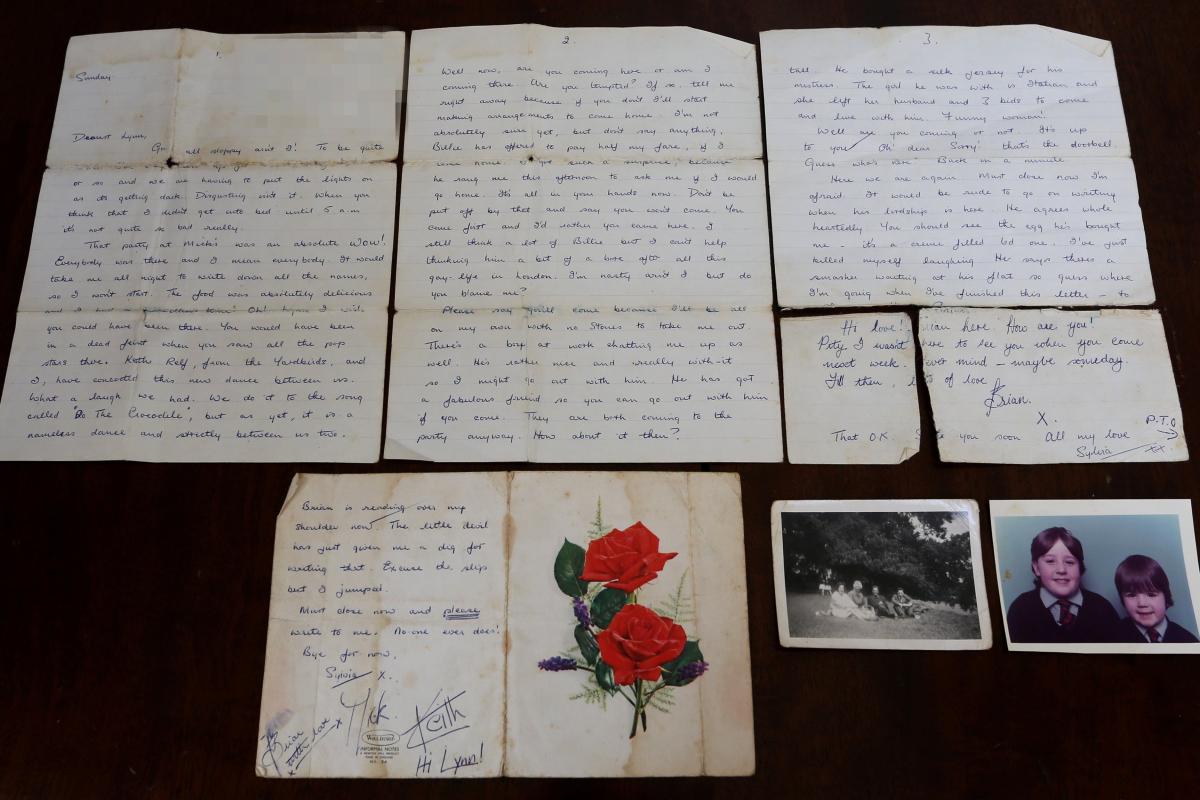 1.
Sunday
Dearest Lynn,
Gee all stoppay ain't I! To be quite
or so and we are having to put the lights on
as its getting dark. Disgusting isn't it. When you
think that I didn't get into bed until 5 a.m
it's not quite so bad really.
That party at Mick's was an absolute WOW!
Everybody was there and I mean everybody. It would
take me all night to write down all the names,
so I won't start. The food was absolutely delicious
and I had a time! Oh! Lynn I wish
you could have been there. You would have been
in a dead faint when you saw all the pop
stars there. Keith Relf, from the Yardbirds, and
I, have concocted this new dance between us.
What a laugh we had. We do it to the song
called "Do The Crocodile", but as yet, it is a
nameless dance and strictly between us two.
2.
Well now, are you coming here or am I
coming there. Are you tempted? If so, tell me
right away because if you don't I'll start
making arrangements to come home. I'm not
absolutely sure yet, but don't say anything,
Billie has offered to pay half my fare, if I
come home. I got such a surprise, because
he rang me this afternoon to ask me if I would
go home. It's all in your hands now. Don't be
put off by that and say you won't come. You
come first and I'd rather you came here. I
still think a lot of Billie but I can't help
thinking him a bit of a bore after all this
gay-life in london. I'm nasty ain't I but do
you blame me?
Please say you'll come because I'll be all
on my own with no Stones to take me out.
There's a boy at work chatting me up as
well. He's rather nice and really with-it
so I might go out with him. He has got
a fabulous friend so you can go out with him
if you come. They are both coming to the
party anyway. How about it then?
3.
tall. He bought a silk jersey for his
mistress. The girl he was with is Italian and
she left her husband and 3 kids to come
and live with him. Funny woman!
Well are you coming or not. It's up
to you. Oh! dear Sorry! that's the doorbell.
Guess who's 'ere. Back in a minute
Here we are again. Must close now I'm
afraid. It would be rude to go on writing
when his lordship is here. He agrees whole
heartedly. You should see the egg he's bought
me - it's a creme filled 6d one. I've just
killed myself laughing. He says there's a
smasher waiting at his flat so guess where
I'm going when I've finished this letter - to
Hi love! ian here. How are you!
Pity I wasn't here to see you when you come
next week. ever mind - maybe someday.
Till then, l s of love
Brian.
X.
P.T.O
That O.K. S e you soon All my love
Sylvia xx
Brian is reading over my
shoulder now. The little devil
has just given me a dig for
writing that. Excuse the slips
but I jumped.
Must close now and please
write to me. No-one ever does!
Bye for now,
Sylvia x.
Mick.
Keith
Hi Lynn!
Brian
x
WALDORF
INFORMAL NOTES